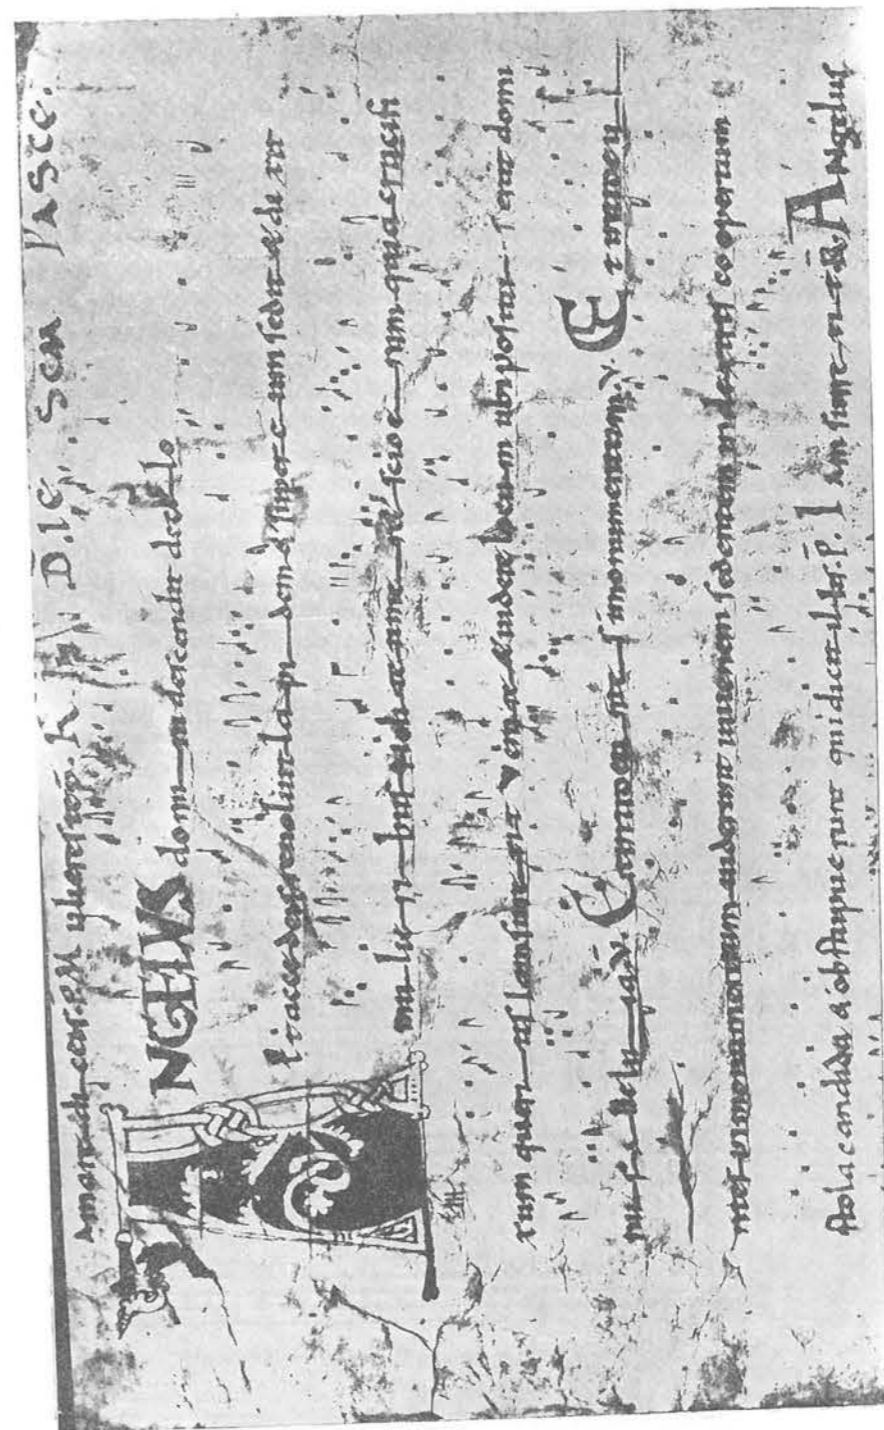 R IN DIE SCM PASCE.
ANGELUS domi ni descendit de ce lo
& accedens revoluit la pi dem & super e um sedit & di xit
mu lie ri bus noli te time re scio e nim quia crucifi
xum queri tis iam surre xit veni te & videte locum ubi positus erat domi
nus alle lu ia. V. monumentum. V. Et introeun
tes in monumentum viderunt iuvenem sedentem in dextris coopertum
stola candida & obstupuerunt qui dicit illis. P. Iam surre xi t R ANgelus